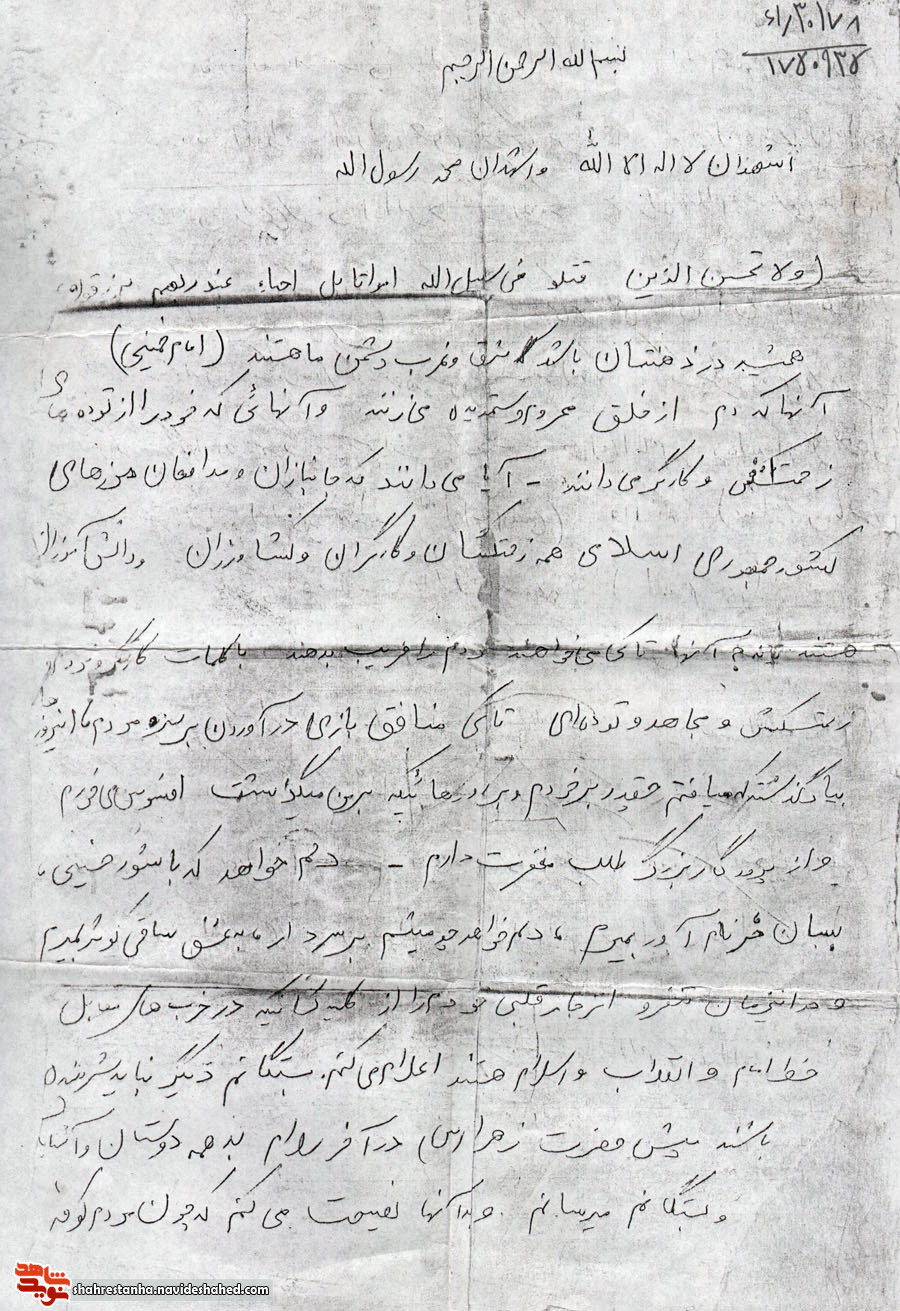 ۸۷/۰۳/۰۱
۱۷۵۰۹۳۵
بسم الله الرحمن الرحیم
اشهدان لا اله الا الله واشهدان محمد رسول الله
(ولا تحسبن الذین قتلو فی سبیل الله امواتا بل احیاء عند ربهم یرزقون
همشیه در ذهنتان باشد که شرق و غرب دشمن ما هستند (امام خمینی)
آنها که دم از خلق محروم و ستمدیده می زنند و آنهائی که خود را از توده های
زحمتکش و کارگر می دانند - آیا می دانند که جانبازان و مدافعان مرزهای
کشور جمهوری اسلامی همه زحتکشان و کارگران و کشاورزان و دانش آموزان
هستند آنها تا کی می خواهند مردم را فریب بدهند با کلمات کارگر و
زحتکش و مجاهد و توده ای تا کی منافق بازی در آوردن بس مردم ما امروز
بیاد گذشته که میافتم چقدر بر خودم و برادرهائیکه بر من میگذاشت افسوس می خورم
و از پروردگار بزرگ طلب مغفرت دارم - دلم خواهد که با شور حسینی
بسان حر نام آور بمیرم دلم خواهد چو میثم بر سر دار به عشق ساقی کوثر بمیرم
و تنفر و انزجار قلبی خودم را از کلیه کسانیکه در حزب های مقابل
خط امام و انقلاب و اسلام هستند اعلام می کنم. بستگانم دیگر نباید شرمنده
باشند پیش حضرت زهرا (س) در آخر سلام به همه دوستان و
و بستگانم میرسانم. و به آنها نصیحت می کنم که چون مردم کوفه
نوید شاهد
shahrestanha.navideshahed.com